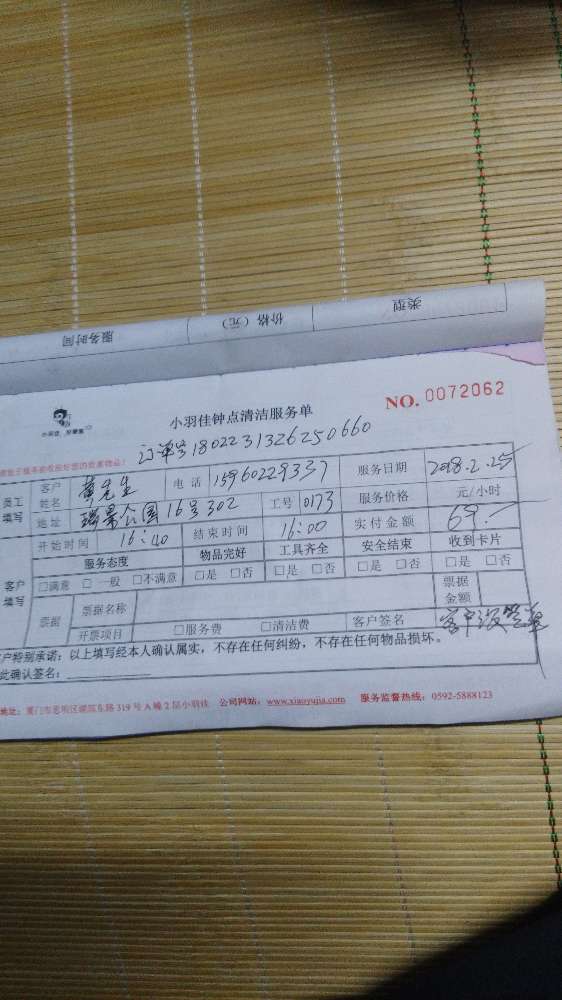 类型 价格（元） 服务时间
小羽佳钟点清洁服务单 NO. 0072062
订单号180223132625066​0
员工填写 客户姓名 黄先生 电话 15960229337 服务日期 2018.2.25
地址 瑞景公园16号302 工号 0173 服务价格 元/小时
开始时间 16:40 结束时间 16:00 实付金额 69.-
客户填写 服务态度 物品完好 工具齐全 安全结束 收到卡片
□满意 □一般 □不满意 □是 □否 □是 □否 □是 □否 □是 □否
票据 票据名称 票据金额
开票项目 □服务费 □清洁费 客户签名 客户没签单
客户特别承诺：以上填写经本人确认属实，不存在任何纠纷，不存在任何物品损坏。
此确认签名：
地址：厦门市思明区湖滨东路319号A幢2层小羽佳 公司网站：www.xiaoyujia.com 服务监督热线：0592-5888123